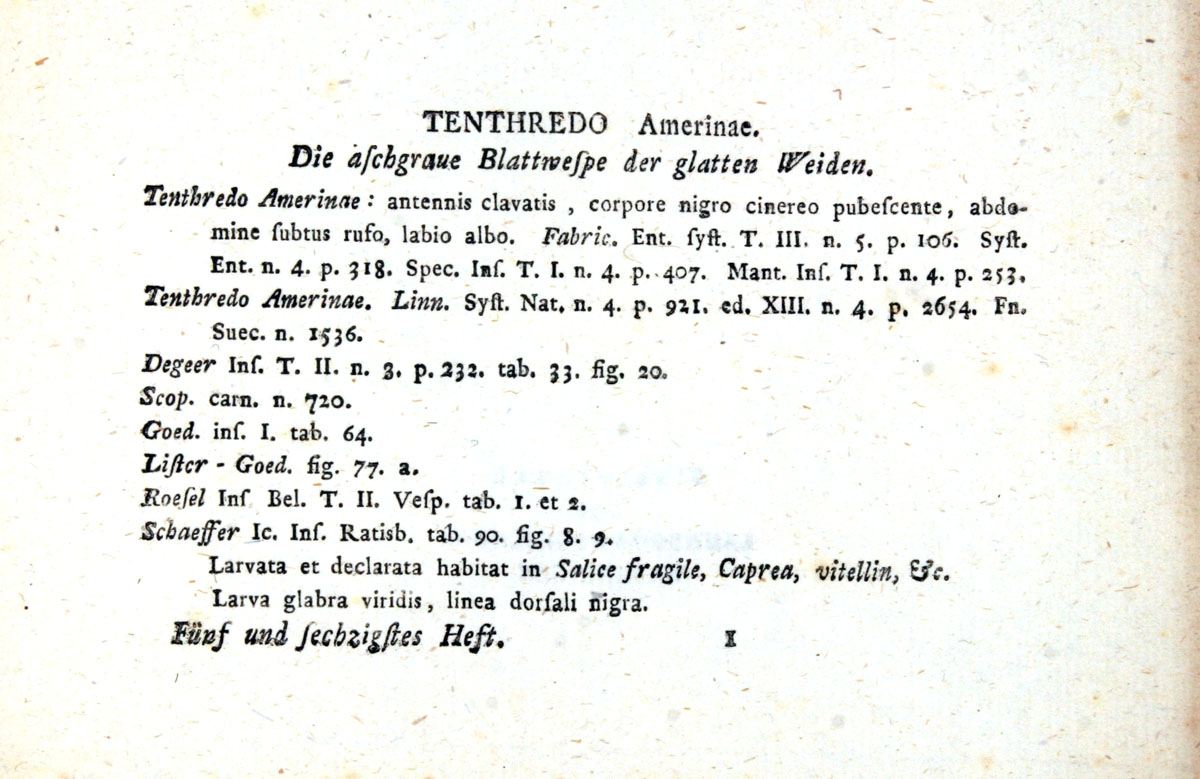 TENTHREDO Amerinae.
Die aſchgraue Blattweſpe der glatten Weiden.
Tenthredo Amerinae: antennis clavatis, corpore nigro cinereo pubeſcente, abdo-
mine ſubtus rufo, labio albo. Fabric. Ent. ſyſt. T. III. n. 5. p. 106. Syſt.
Ent. n. 4. p. 318. Spec. Inſ. T. I. n. 4. p. 407. Mant. Inſ. T. I. n. 4. p. 253.
Tenthredo Amerinae. Linn. Syſt. Nat. n. 4. p. 921. ed. XIII. n. 4. p. 2654. Fn.
Suec. n. 1536.
Degeer Inſ. T. II. n. 3. p. 232. tab. 33. fig. 20.
Scop. carn. n. 720.
Goed. inſ. I. tab. 64.
Liſter - Goed. fig. 77. a.
Roeſel Inſ Bel. T. II. Veſp. tab. 1. et 2.
Schaeffer Ic. Inſ. Ratisb. tab. 90. fig. 8. 9.
Larvata et declarata habitat in Salice fragile, Caprea, vitellin, &c.
Larva glabra viridis, linea dorſali nigra.
Fünf und ſechzigſtes Heft. I